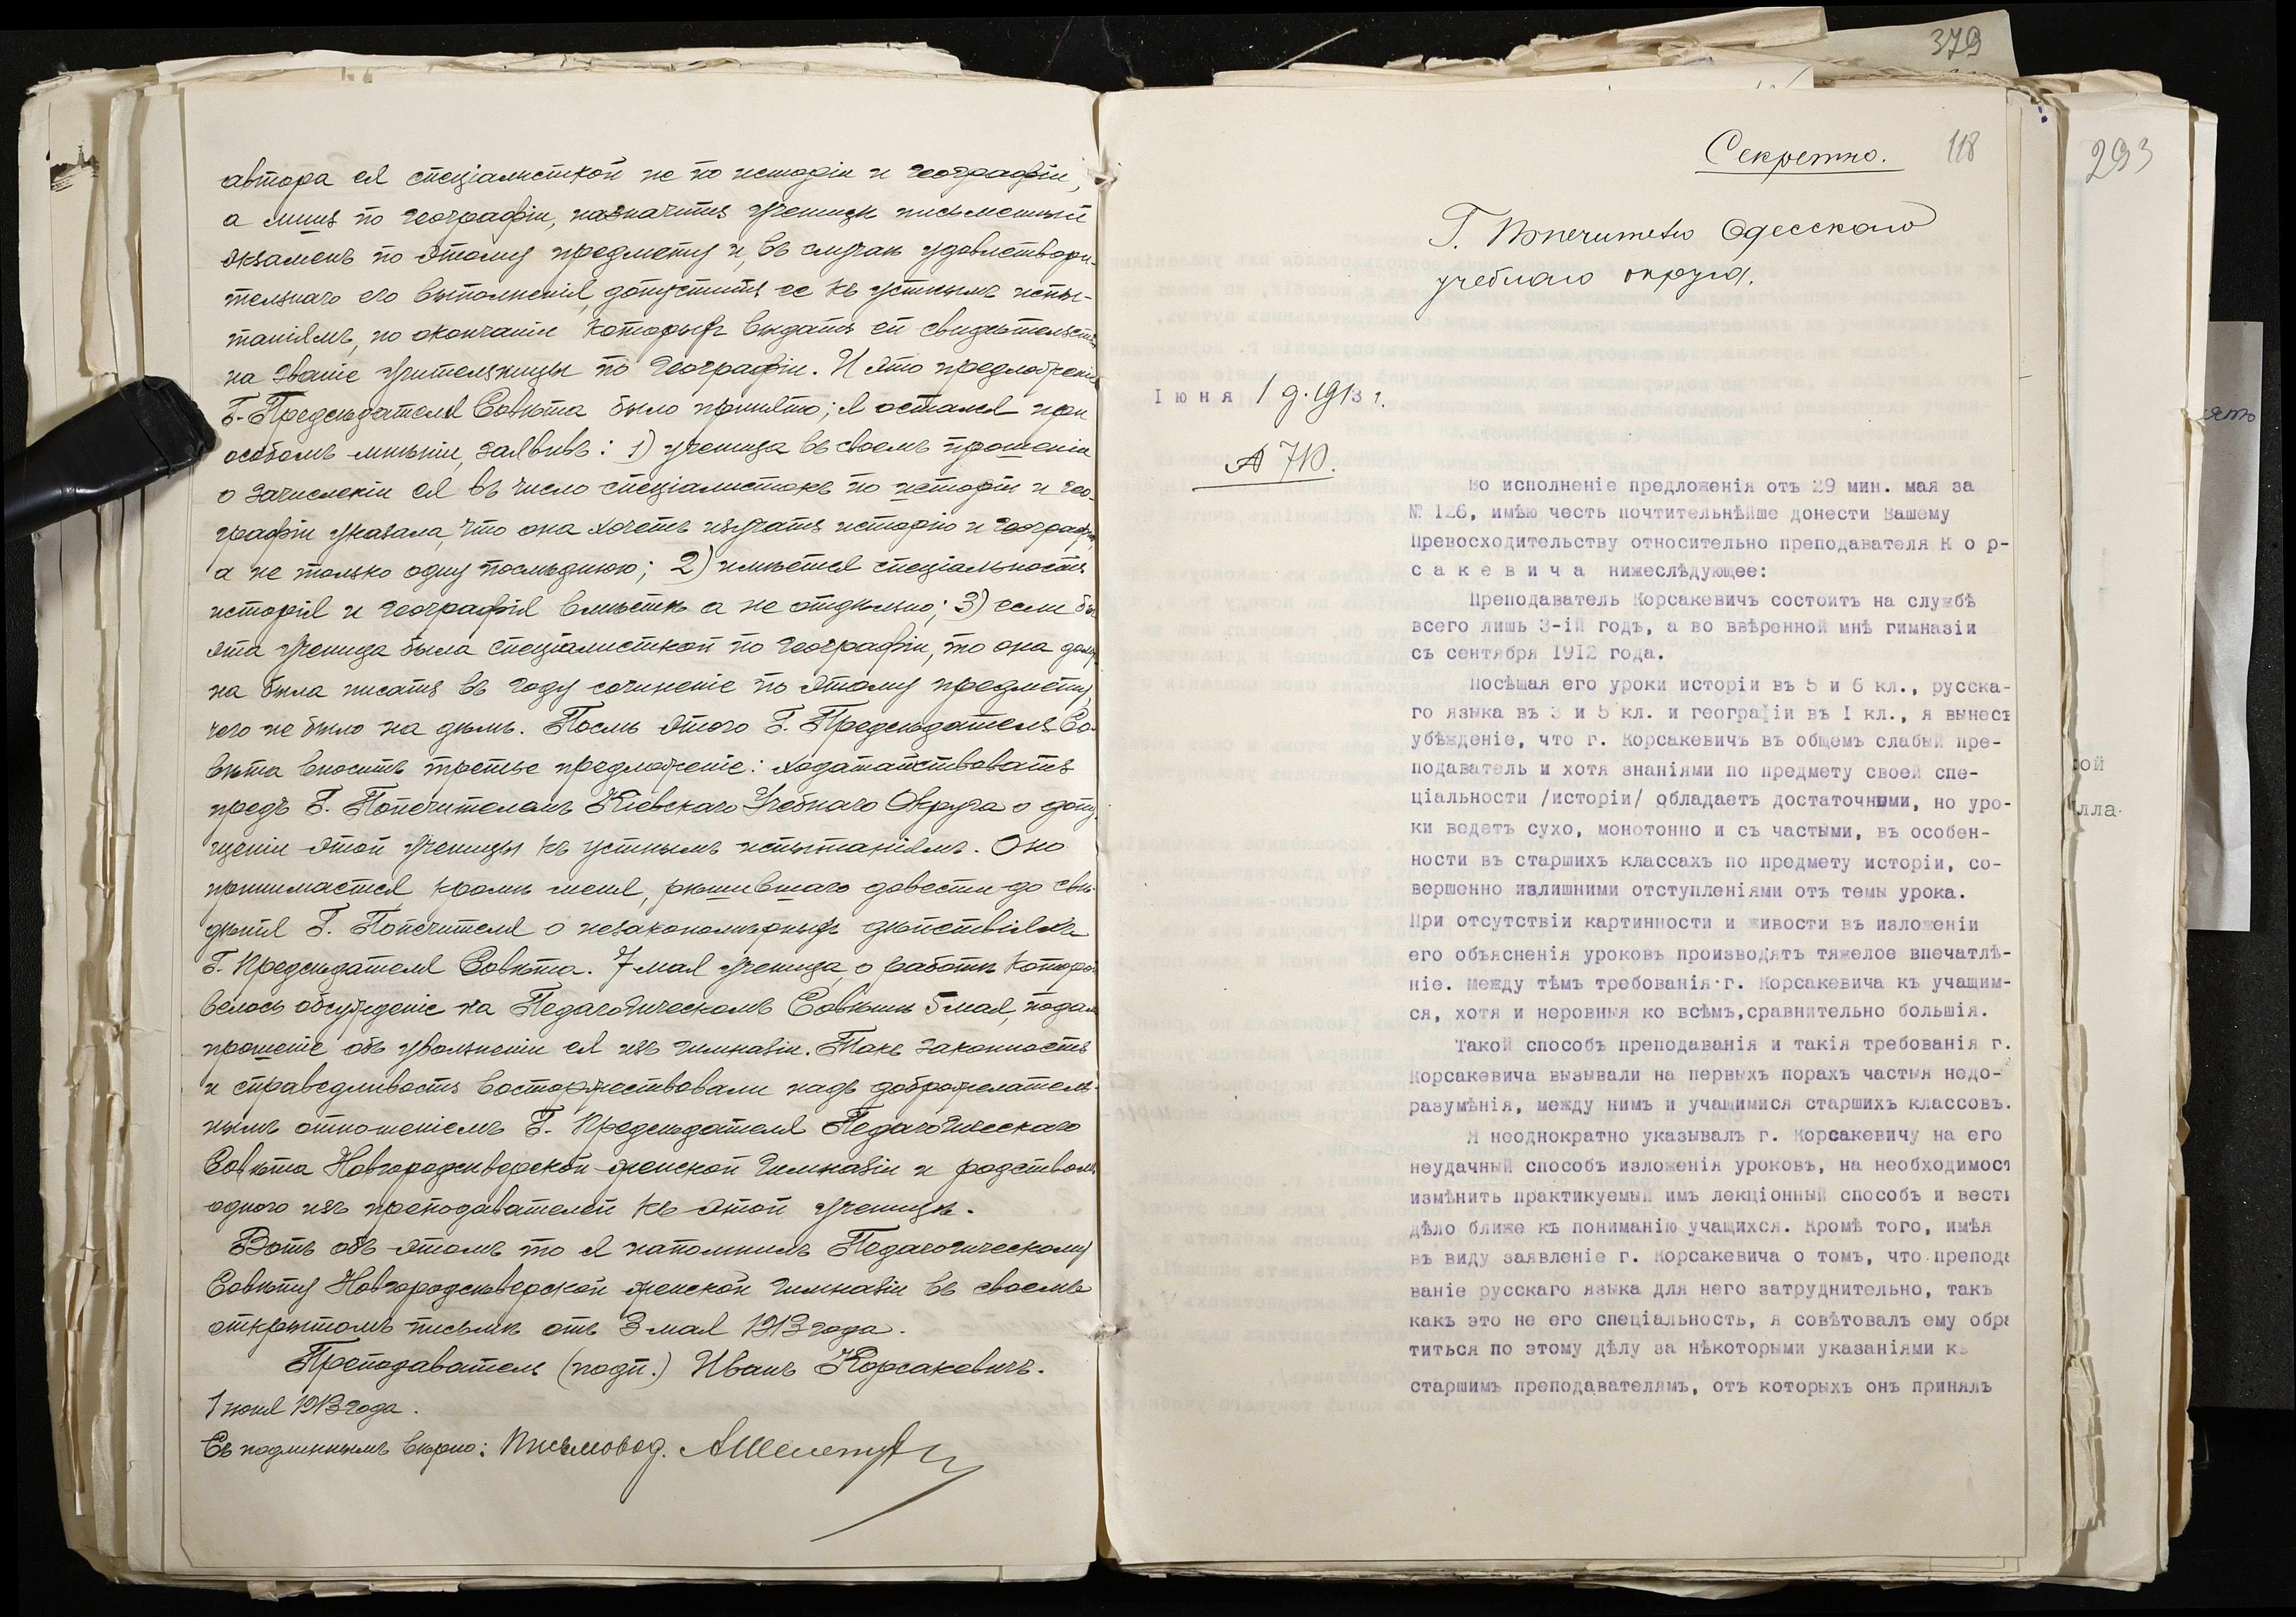 автора ея спеціалисткой не по исторіи и географіи,
а лишь по географіи, назначить ученицѣ письменный
экзаменъ по этому предмету и, въ случаѣ удовлетвори-
тельнаго его выполненія, допустить ее къ устнымъ испы-
таніямъ, по окончаніи которыхъ выдать ей свидѣтельство
на званіе учительницы по географіи. И это предложеніе
Г. Предсѣдателя Совѣта было принято; я остался при
особомъ мнѣніи, заявивъ: 1) ученица въ своемъ прошеніи
о зачисленіи ея въ число спеціалистокъ по исторіи и гео-
графіи указала, что она хочетъ изучать исторію и географію,
а не только одну послѣднюю; 2) имѣется спеціальность
исторія и географія вмѣстѣ а не отдѣльно; 3) если бы
эта ученица была спеціалисткой по географіи, то она долж-
на была писать въ году сочиненіе по этому предмету,
чего не было на дѣлѣ. Послѣ этого Г. Предсѣдатель Со-
вѣта вноситъ третье предложеніе: ходатайствовать
предъ Г. Попечителемъ Кіевскаго Учебнаго Округа о допу-
щеніи этой ученицы къ устнымъ испытаніямъ. Оно
принимается, кромѣ меня, рѣшившаго довести до свѣ-
дѣнія Г. Попечителя о незакономѣрныхъ дѣйствіяхъ
Г. Предсѣдателя Совѣта. 7 мая ученица, о работѣ которой
велось обсужденіе на Педагогическомъ Совѣтѣ 5 мая, подала
прошеніе объ увольненіи ея изъ гимназіи. Такъ законность
и справедливость восторжествовали надъ доброжелатель-
нымъ отношеніемъ Г. Предсѣдателя Педагогическаго
Совѣта Новгородсѣверской женской гимназіи и родствомъ
одного изъ преподавателей къ этой ученицѣ.
Вотъ объ этомъ то я напомнилъ Педагогическому
Совѣту Новгородсѣверской женской гимназіи въ своемъ
открытомъ письмѣ отъ 3 мая 1913 года.
Преподаватель (подп.) Иванъ Корсакевичъ.
1 юня 1913 года.
Съ подлиннымъ вѣрно: Письмовод.
379
118
293
Секретно.
Г. Попечителю Одесскаго
учебнаго округа.
Іюня 1 д. 1913 г.
Во исполненіе предложенія отъ 29 мин. мая за
№ I26, имѣю честь почтительнѣйше донести Вашему
Превосходительству относительно преподавателя К о р-
с а к е в и ч а нижеслѣдующее:
Преподаватель Корсакевичъ состоитъ на службѣ
всего лишь 3-ій годъ, а во ввѣренной мнѣ гимназіи
съ сентября 1912 года.
Посѣщая его уроки исторіи въ 5 и 6 кл., русска-
го языка въ 3 и 5 кл. и географіи въ I кл., я вынесъ
убѣжденіе, что г. Корсакевичъ въ общемъ слабый пре-
подаватель и хотя знаніями по предмету своей спе-
ціальности /исторіи/ обладаетъ достаточными, но уро-
ки ведетъ сухо, монотонно и съ частыми, въ особен-
ности въ старшихъ классахъ по предмету исторіи, со-
вершенно излишними отступленіями отъ темы урока.
При отсутствіи картинности и живости въ изложеніи
его объясненія уроковъ производятъ тяжелое впечатлѣ-
ніе. Между тѣмъ требованія г. Корсакевича къ учащим-
ся, хотя и неровныя ко всѣмъ, сравнительно большія.
Такой способъ преподаванія и такія требованія г.
Корсакевича вызывали на первыхъ порахъ частыя недо-
разумѣнія, между нимъ и учащимися старшихъ классовъ.
Я неоднократно указывалъ г. Корсакевичу на его
неудачный способъ изложенія уроковъ, на необходимост
измѣнить практикуемый имъ лекціонный способъ и вести
дѣло ближе къ пониманію учащихся. Кромѣ того, имѣя
въ виду заявленіе г. Корсакевича о томъ, что препода
ваніе русскаго языка для него затруднительно, такъ
какъ это не его спеціальность, я совѣтовалъ ему обра
титься по этому дѣлу за нѣкоторыми указаніями къ
старшимъ преподавателямъ, отъ которыхъ онъ принялъ